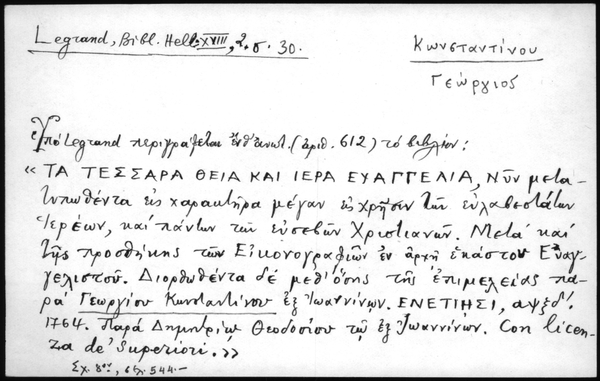 Legrand, Bibl. Hell. XVIII, 2. σ. 30.
Κωνσταντίνου
Γεώργιος
Ὑπό Legrand περιγράφεται (ἀριθ. 612) τό βιβλίον:
« ΤΑ ΤΕΣΣΑΡΑ ΘΕΙΑ ΚΑΙ ΙΕΡΑ ΕΥΑΓΓΕΛΙΑ, Νῦν μετα-
τυπωθέντα εἰς χαρακτῆρα μέγαν εἰς χρῆσιν τῶν εὐλαβεστάτων
Ἱερέων, καί πάντων τῶν εὐσεβῶν Χριστιανῶν. Μετά καί
τῆς προσθήκης τῶν Εἰκονογραφιῶν ἐν ἀρχῇ ἑκάστου Εὐαγ-
γελιστοῦ. Διορθωθέντα δέ μεθ' ὅσης τῆς ἐπιμελείας πα-
ρά Γεωργίου Κωνσταντίνου ἐξ Ἰωαννίνων. ΕΝΕΤΙΗΣΙ, αψξδ'
1764. Παρά Δημητρίῳ Θεοδοσίου τῷ ἐξ Ἰωαννίνων. Con licen-
za de' Superiori.»
Σχ. 8ον, σελ. 544.—